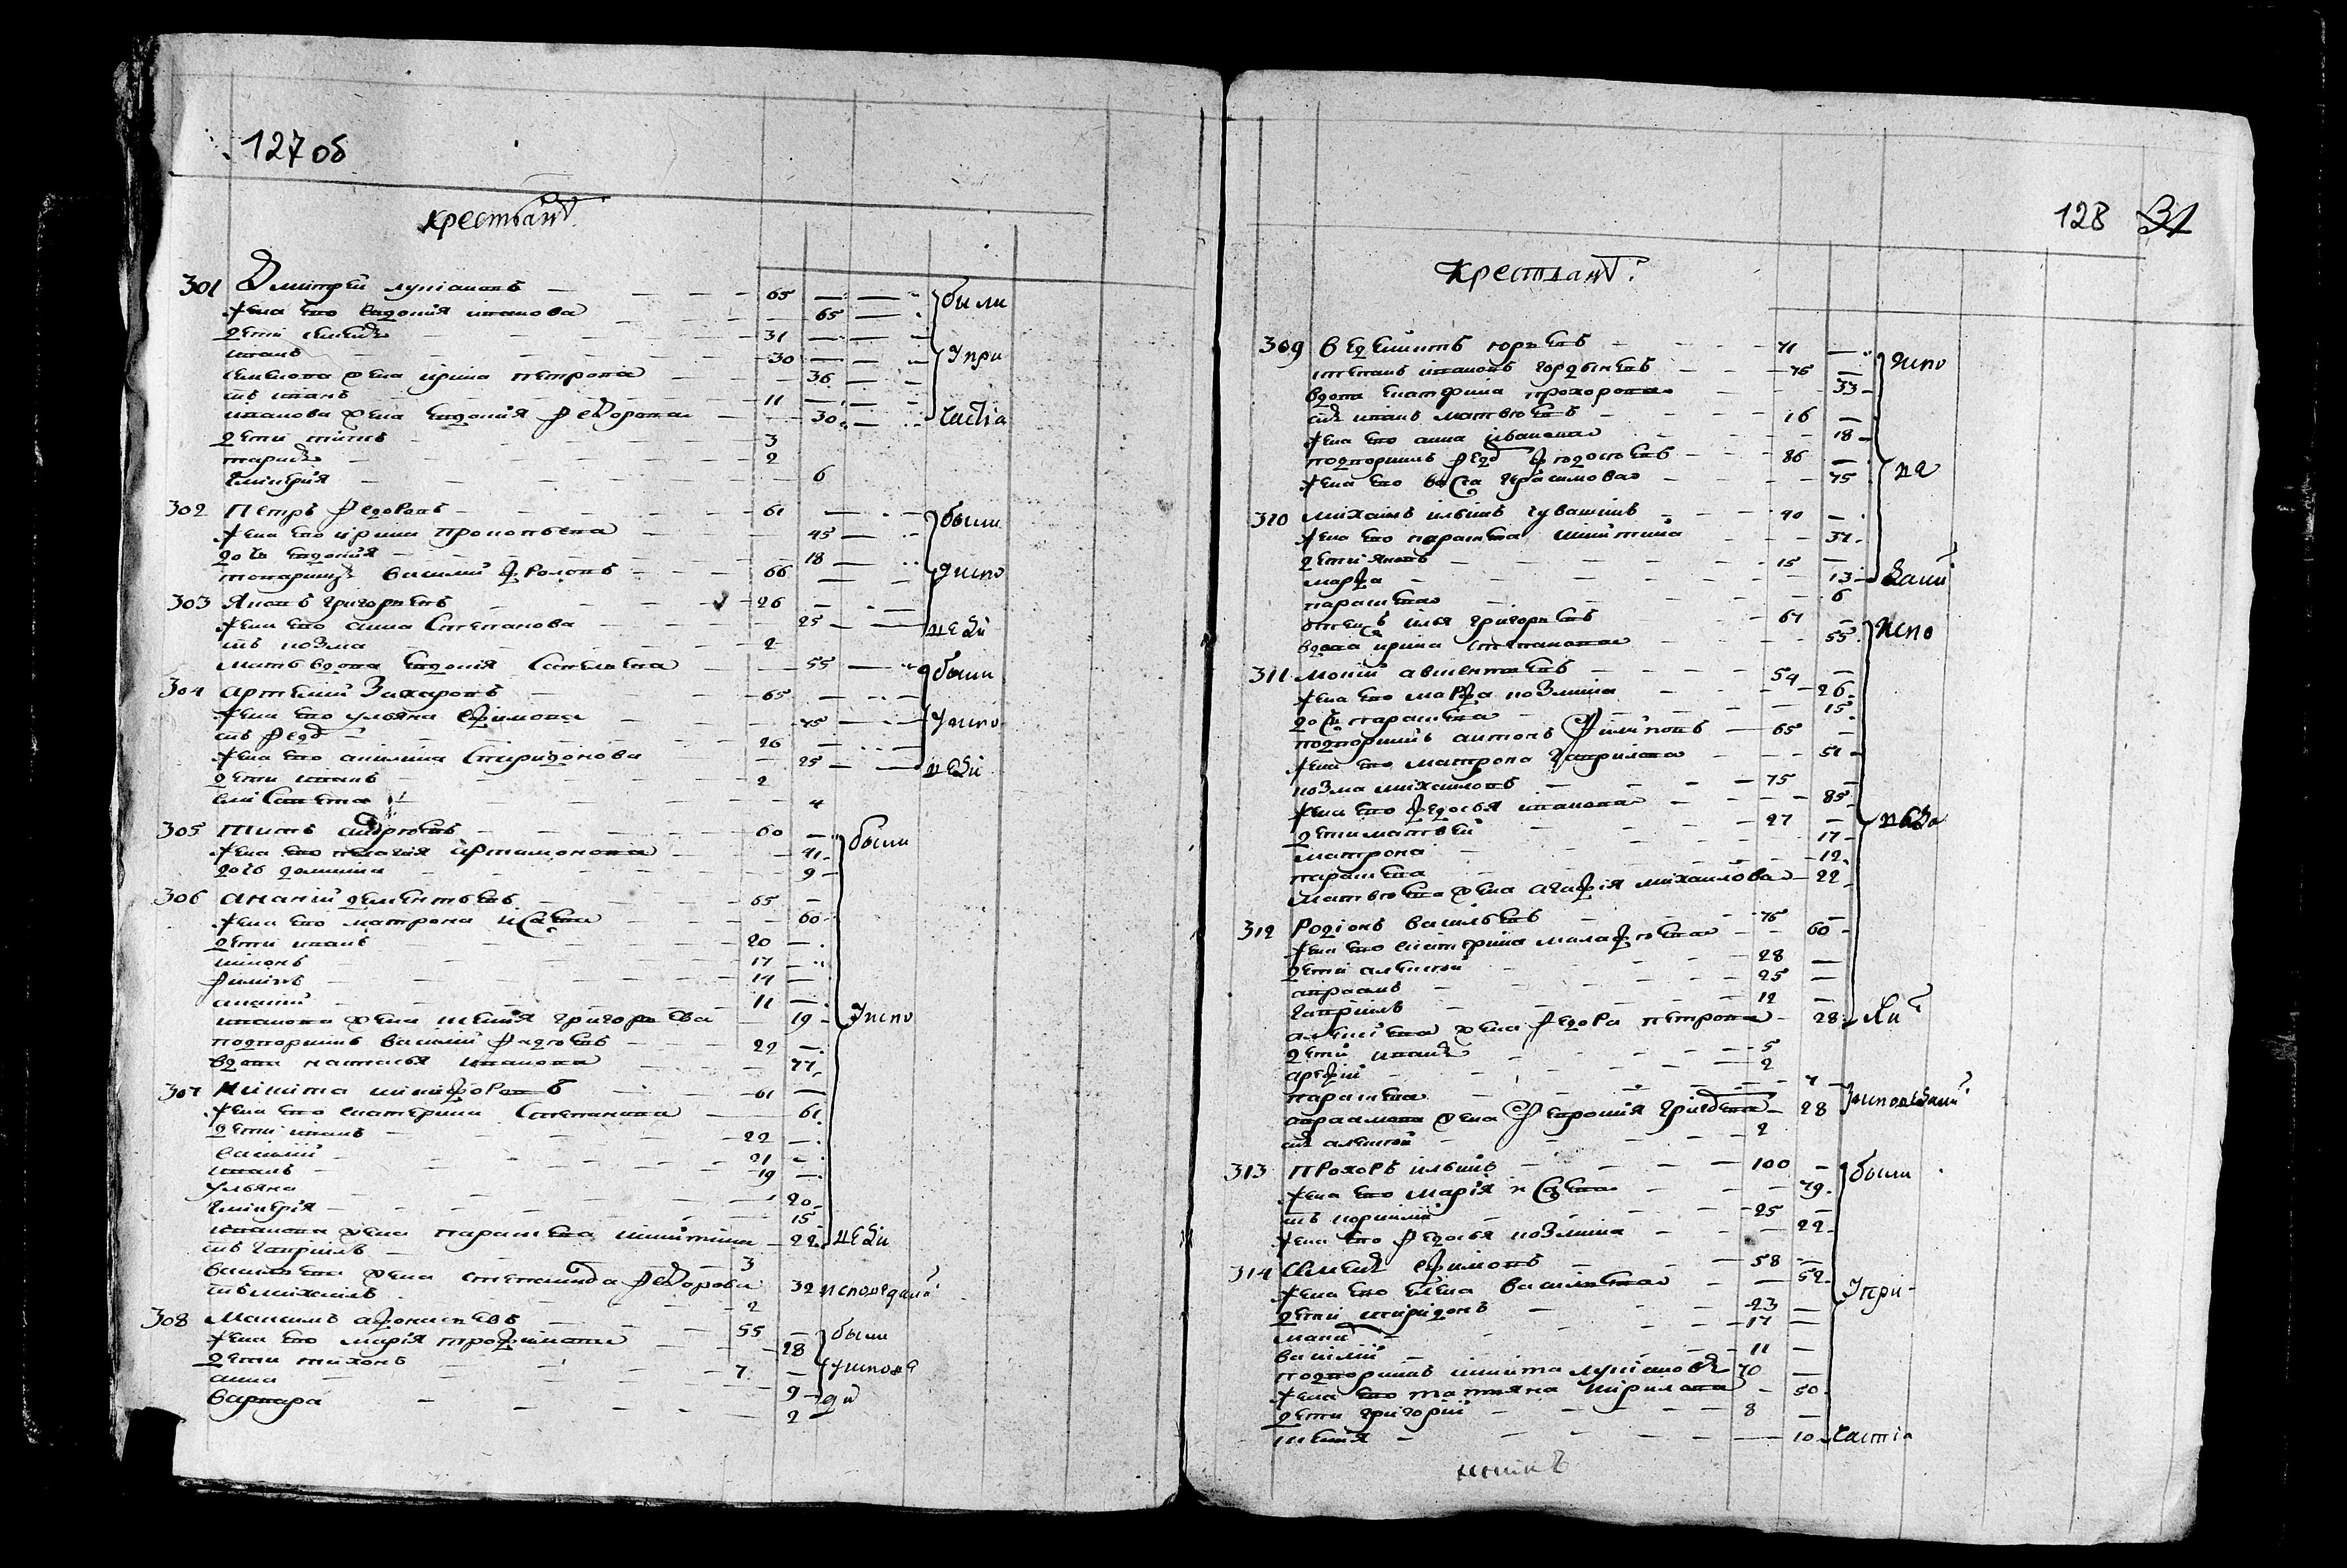 127 об
крестьянъ
301 Дмитрей лукiановъ 65 были
жена ево евдокия иванова 65
дети семенъ 31
иванъ 30 у при
семенова жена ирина петрова 36
сынъ иванъ 11
иванова жена евдокия федорова 30 частiя
дети титъ 3
тарасъ 2
гликерiя 6
302 Петръ федоровъ 61 были
жена ево ирина прокопьева 45
дочь евдокия 18
товарищъ василий фроловъ 66 у испо
303 Яковъ григорьевъ 26
жена ево анна степанова 25 веди
сынъ козма 2
мать вдова евдокия савельева 55 были
304 артемий захаровъ 65
жена ево ульяна ефимова 45 у испо
сынъ федоръ 26
жена ево акилина спиридонова 25 веди
дети иванъ 2
елисавета 4
305 Титъ андреевъ 60 были
жена ево пелагия артамонова 41
дочь домника 9
306 ананий дементьевъ 65
жена ево матрона исаева 60
дети иванъ 20
симонъ 17
филипъ 14
ананий 11
иванова жена ксения григорьева 19 у испо
подворникъ василий фадеевъ 22
вдова наталья иванова 77
307 никита никифоровъ 61
жена ево екатерина степанова 61
дети иванъ 22
василий 21
иванъ 19
ульяна 20
гликерiя 15
иванова жена парасковья никитина 22 веди
сынъ гаврилъ 3
васильева жена степанида федорова 32 исповедани
сынъ михаилъ 2
308 Максимъ афонасьевъ 55 были
жена ево марiя трофимова 28
дети тихонъ 7 у испове
анна 9 ди
варвара 2
128 31
крестьянъ
309 71 испо
степанъ ивановъ 75
вдова екатерина прохорова 33
сынъ иванъ матвеевъ 16
жена ево анна иванова 18
подворникъ федоръ федосеевъ 86
жена ево васса герасимова 75 ве
310 михаилъ ильинъ чувашинъ 40
жена ево парасковья никитина 37
дети яковъ 15
марфа 13 дани
парасковья 6
отецъ илья григорьевъ 67 испо
вдова ирина степанова 55
311 мокий авксентьевъ 54
жена ево марфа козмина 26
дочь парасковья 15
подворникъ антонъ филиповъ 65
жена ево матрона гаврилова 51
козма михайловъ 75
жена ево федосья иванова 85
дети матвей 27 веда
матрона 17
парасковья 12
матвеева жена агафiя михайлова 22
312 Родiонъ васильевъ 75
жена ево екатерина малафеева 60
дети алексей 28
авраамъ 25
гаврилъ 12
алексеева жена федора петрова 28 ни
дети иванъ 5
арефий 2
парасковья 7
авраамова жена феврония 28 у исповедани
сынъ алексей 2
313 Прохоръ ильинъ 100 были
жена ево марiя исаева 79
сынъ корнилий 25
жена ево федосья козмина 22
314 Семенъ ефимовъ 58
жена ево елена васильева 52
дети спиридонъ 23 у при
17
василий 11
подворникъ никита лукiановъ 70
жена ево татьяна кирилова 50
дети григорий 8
ксения 10 частiя